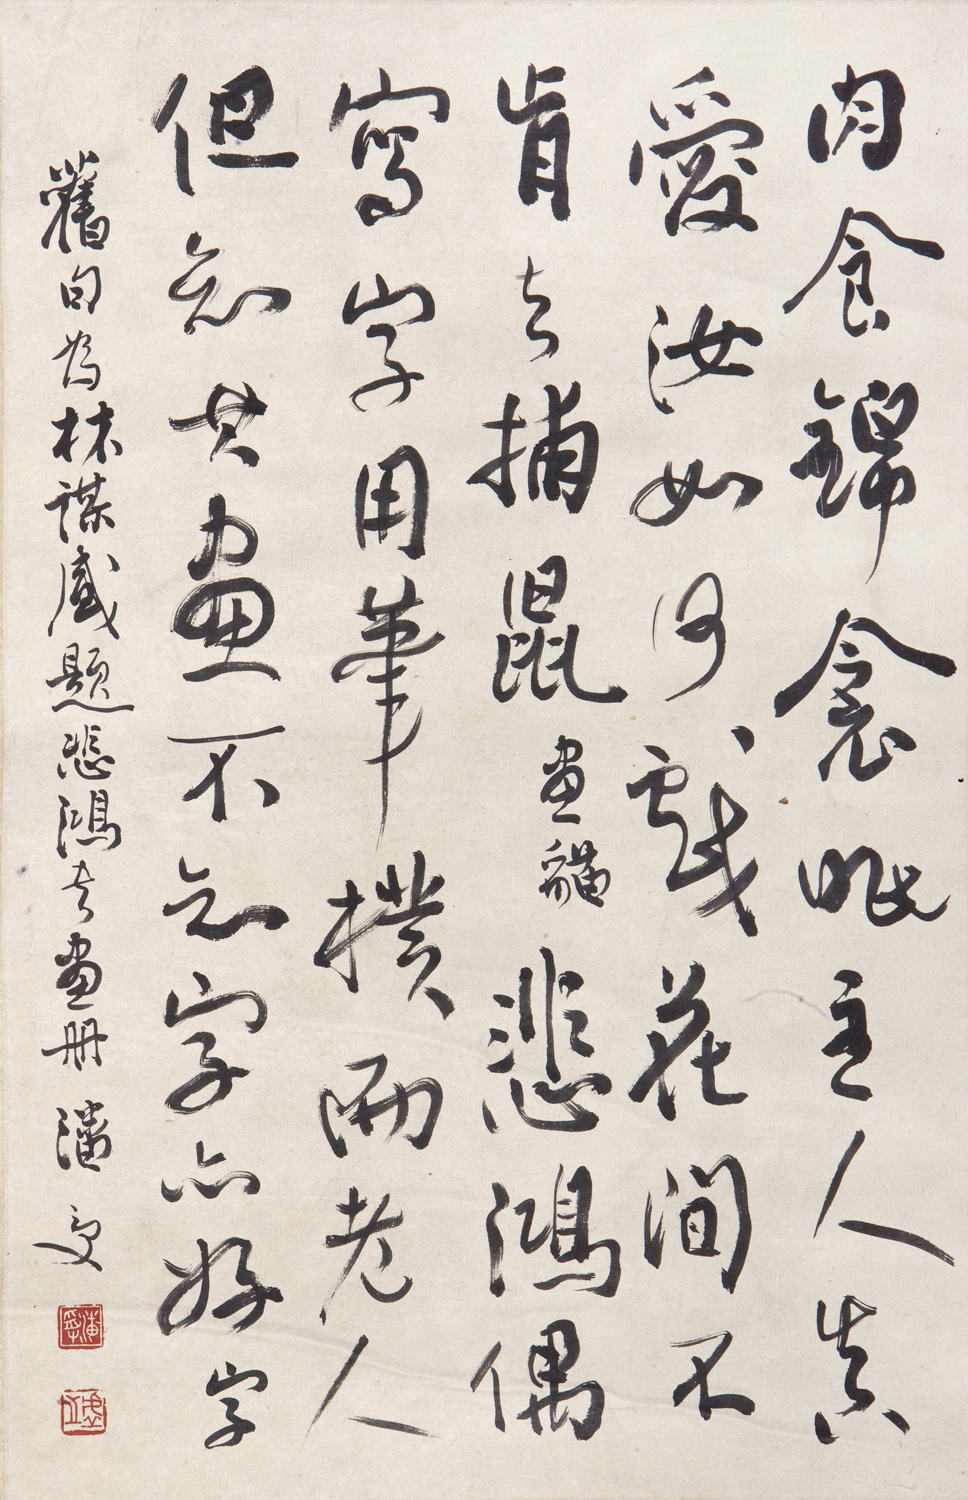 肉食錦衾眠主人真
愛汝如何戲花間不
肯去捕鼠 畫貓 悲鴻偶
寫字用筆樸而老人
但知其畫不知字亦好 字
舊句為林謀盛題悲鴻書畫冊 潘受
潘受
虛之